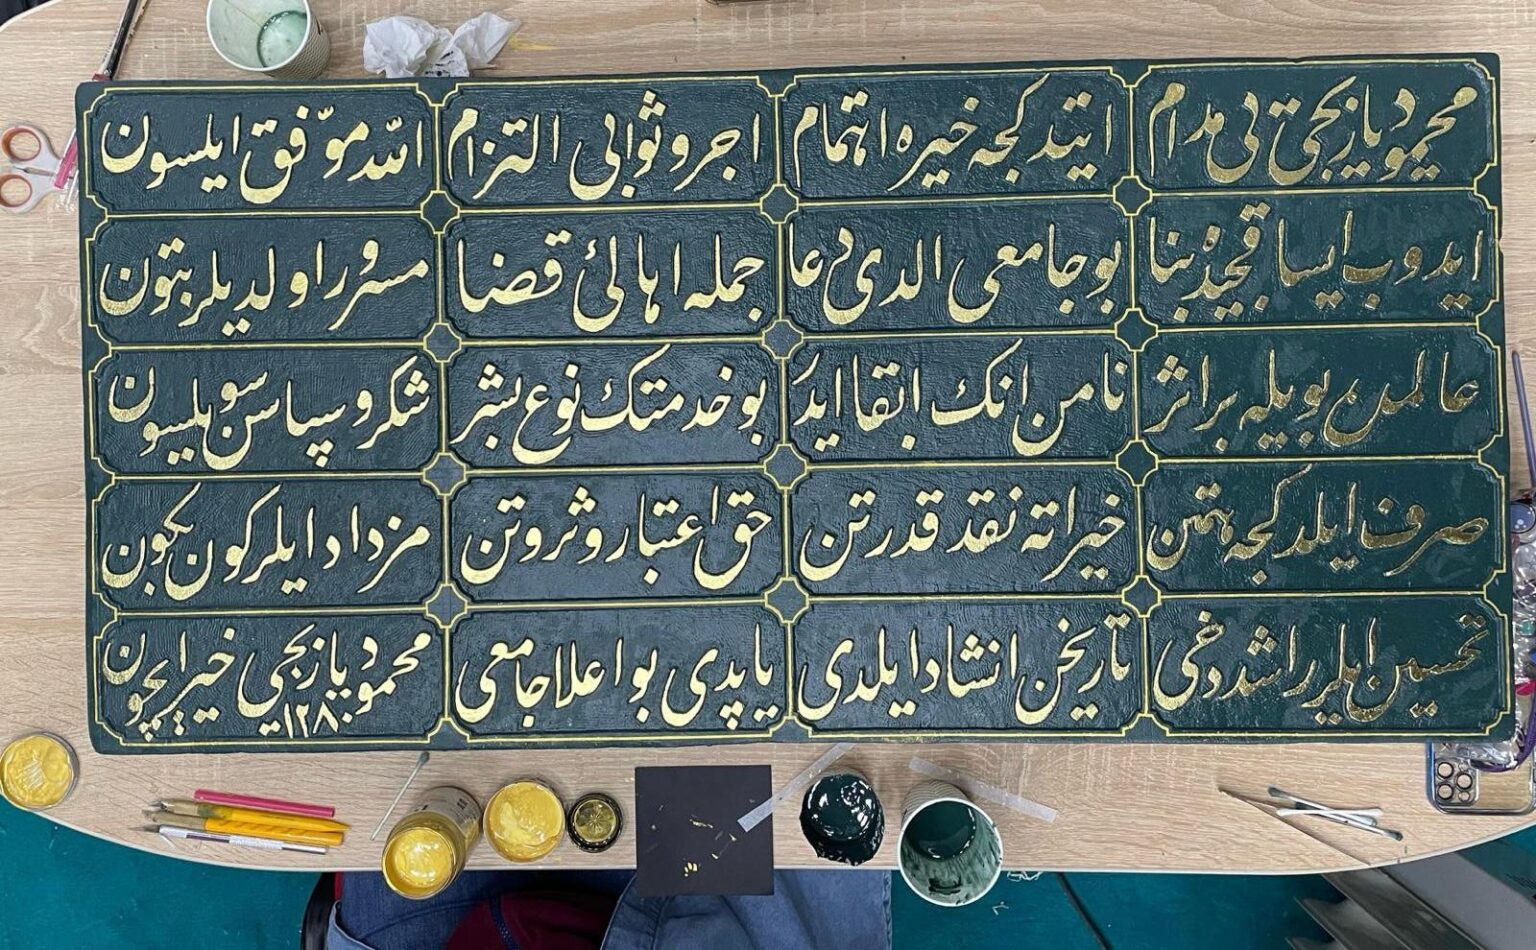 محمود یازیجی بی مدام ایتدکجه خیره اهتمام اجر و ثوابی التزام الله موّفق ایلسون
ایدوب ایسا قجیدْ بنا بو جامعی الدی دعا جمله اهالئ قضا مسرور اولدیلر بتون
عالمدن بویله بر اثر نامن انک ابقا ایدر بو خدمتک نوع بشر شکر و سپاسن سویلیسون
صرف ایلدکجه همتن خیراته نقد قدرتن حق اعتبار و ثروتن مزداد ایلر کون بکون
تحسین ایلر راشد دخی تاریخن انشاد ایلدی یاپدی بو اعلا جامعی محمود یازیجی خیر ایچون
۱۲۸۰